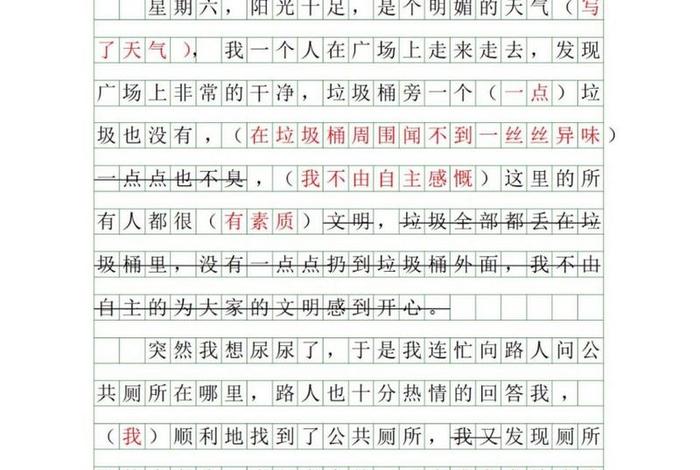 星期六，阳光十足，是个明媚的天气（写
了天气），我一个人在广场上走来走去，发现
广场上非常的干净，垃圾桶旁一个（一点）垃
圾也没有，（在垃圾桶周围闻不到一丝丝异味）
一点点也不臭，（我不由自主感慨）这里的所
有人都很（有素质）文明，垃圾全部都丢在垃
圾桶里，没有一点点扔到垃圾桶外面，我不由
自主的为大家的文明感到开心。
突然我想尿尿了，于是我连忙向路人问公
共厕所在哪里，路人也十分热情的回答我，
（我）顺利地找到了公共厕所，我又发现厕所